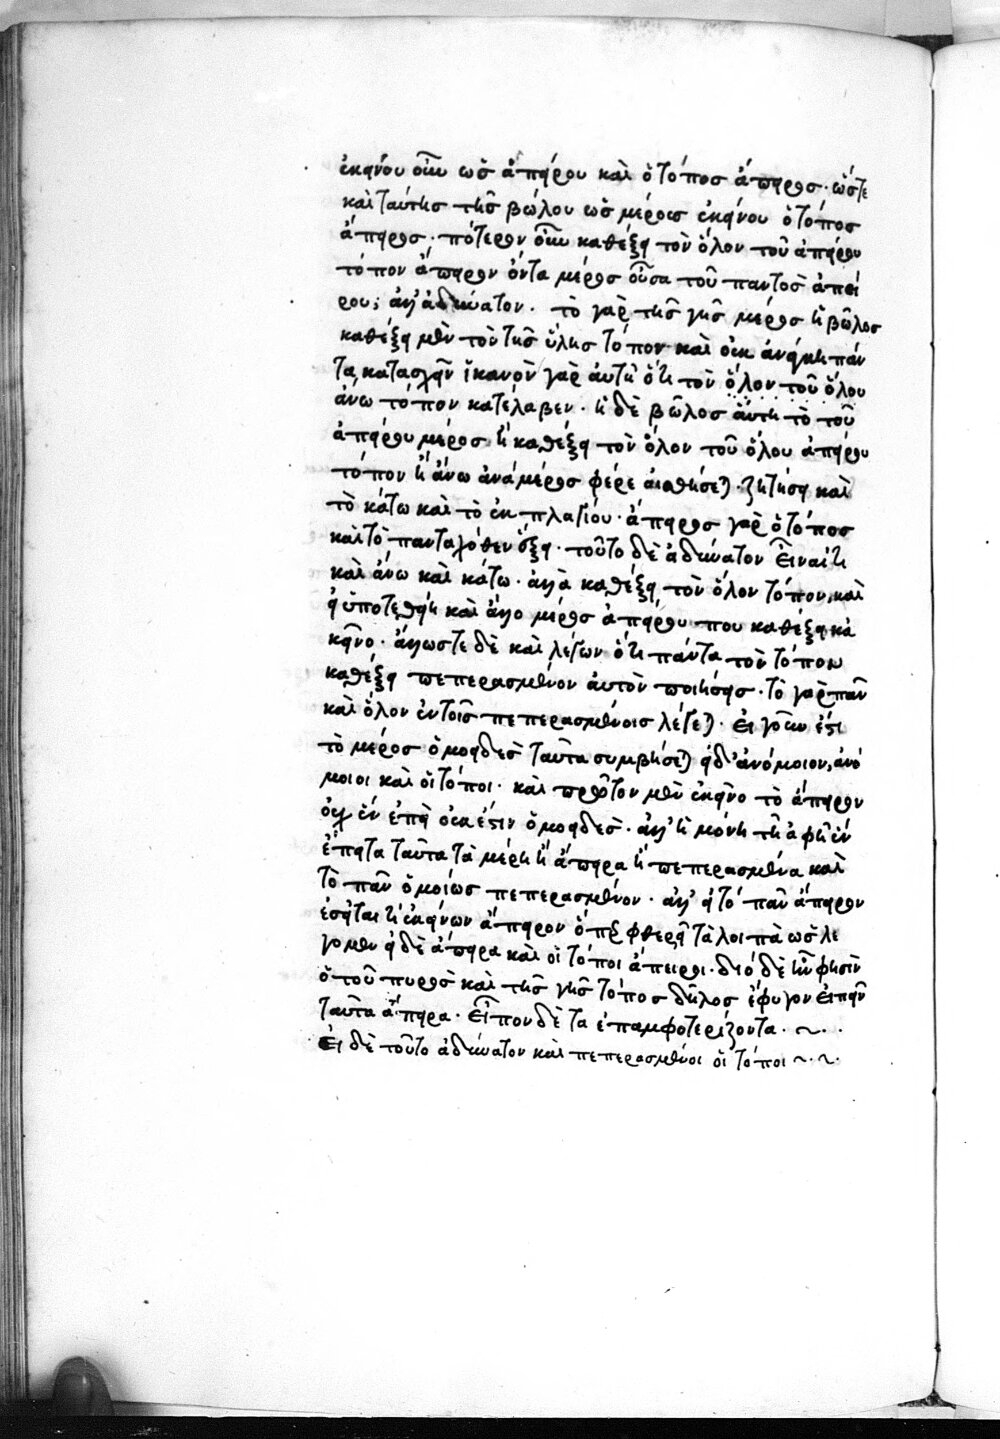 ἐκείνου οὖν ὡς ἀπείρου καὶ ὁ τόπος ἄπειρος· ὥστε
καὶ ταύτης τῆς βώλου ὡς μέρους ἐκείνου ὁ τόπος
ἄπειρος· πότερον οὖν καθέξει τὸν ὅλον τοῦ ἀπείρου
τόπον ἄπειρον ὄντα μέρος οὖσα τοῦ παντὸς ἀπεί
ρου; ἀλλ' ἀδύνατον. τὸ γὰρ τῆς γῆς μέρος ἡ βῶλος
καθέξει μὲν τὸν τῆς ὕλης τόπον καὶ οὐκ ἀνάγκη πάν
τα κατασχεῖν ἱκανὸν γὰρ αὐτῇ ὅτι τὸν ὅλον τοῦ ὅλου
ἄνω τόπον κατέλαβεν. ἡ δὲ βῶλος αὕτη τὸ τοῦ
ἀπείρου μέρος ἢ καθέξει τὸν ὅλον τοῦ ὅλου ἀπείρου
τόπον ἢ ἄνω ἀνάμέρος φέρε ζητήσει καὶ
τὸ κάτω καὶ τὸ ἐκ πλαγίου· ἄπειρος γὰρ ὁ τόπος
καὶ τὸ πανταχόθεν ἕξει· τοῦτο δὲ ἀδύνατον εἶναί τι
καὶ ἄνω καὶ κάτω. ἀλλὰ καθέξει τὸν ὅλον τόπον, καὶ
εἰ ὑποτεθείη καὶ ἄλλο μέρος ἀπείρου που καθέξει κἀ
κεῖνο. ἄλλωστε δὲ καὶ λέγων ὅτι πάντα τὸν τόπον
καθέξει πεπερασμένον αὐτὸν ποιήσεις. τὸ γὰρ πᾶν
καὶ ὅλον ἐν τοῖς πεπερασμένοις λέγεται. εἰ γοῦν ἐστι
τὸ μέρος ὁμοειδὲς ταῦτα συμβήσεται εἰ δ' ἀνόμοιον, ἀνό
μοιοι καὶ οἱ τόποι. καὶ πρῶτον μὲν ἐκεῖνο τὸ ἄπειρον
οὐχ ἓν ἐπεὶ οὐκ ἔστιν ὁμοειδὲς. ἀλλ' ἢ μόνῃ τῇ ἁφῇ ἓν
ἔπειτα ταῦτα τὰ μέρη ἢ ἄπειρα ἢ πεπερασμένα καὶ
τὸ πᾶν ὁμοίως πεπερασμένον. ἀλλ' εἰ τὸ πᾶν ἄπειρον
ἔσεταί τι ἐκείνων ἄπειρον ὅπερ φθερεῖ τὰ λοιπὰ ὡς λέ
γομεν εἰ δὲ ἄπειρα καὶ οἱ τόποι ἄπειροι. διὸ δὲ ἦν φησὶν
ὁ τοῦ πυρὸς καὶ τῆς γῆς τόπος δῆλος ἔφυγον εἰπεῖν
ταῦτα ἄπειρα. εἶπον δὲ τὰ ἐπαμφοτερίζοντα. ~.
Εἰ δὲ τοῦτο ἀδύνατον καὶ πεπερασμένοι οἱ τόποι ~.~.